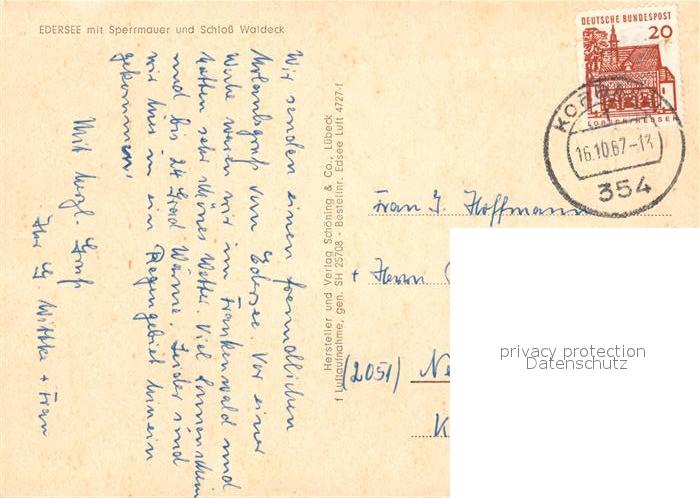 EDERSEE mit Sperrmauer und Schloß Waldeck
Wir senden einen freundlichen
Urlaubsgruß vom Edersee. Vor einer
Woche waren wir im Frankenwald und
hatten sehr schönes Wetter. Viel Sonnenschein
und bis 24 Grad Wärme. Leider sind
wir hier in ein Regengebiet hinein
gekommen.
Mit herzl. Gruß
Ihr G. Wittke + Frau
Hersteller und Verlag Schöning & Co., Lübeck
f Luftaufnahme, gen. SH 25708 - Bestellnr. Edsee Luft 4727-f
DEUTSCHE BUNDESPOST
20
LORSCH/HESSEN
KOR
16.10.67-13
354
Frau J. Hoffmann
+ Herrn
(2051) Ne
K
privacy protection
Datenschutz